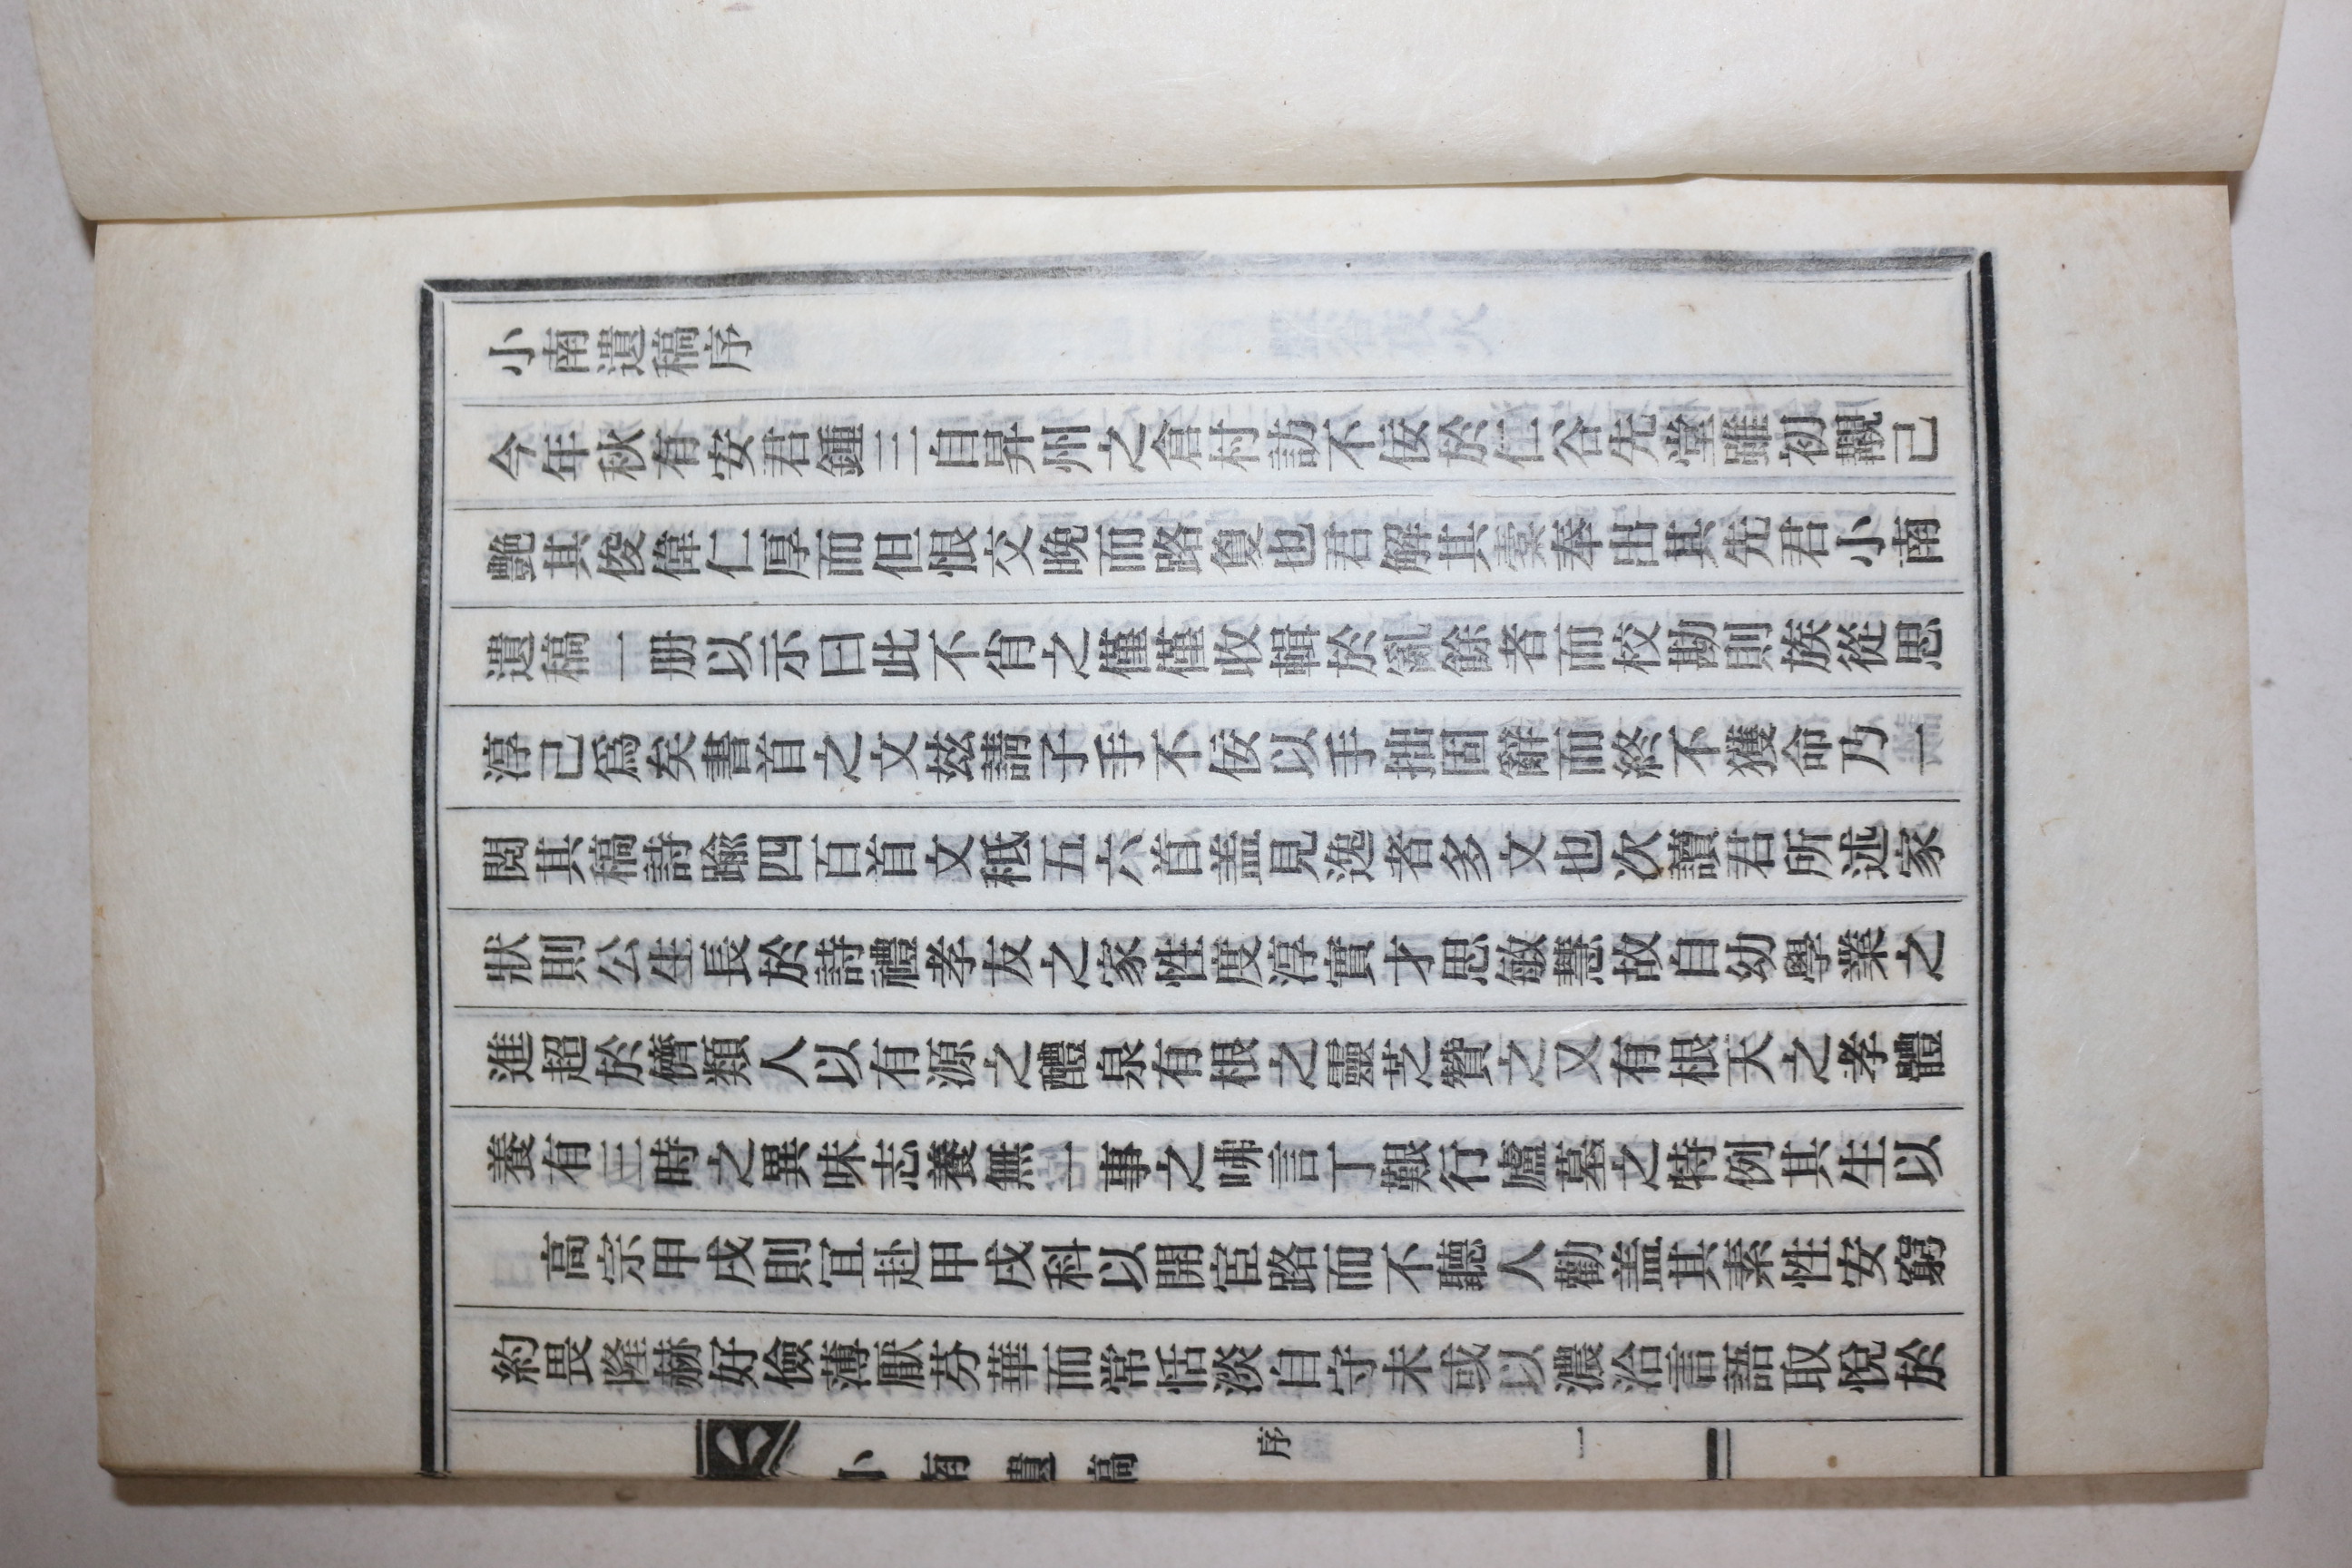 小南遺稿序
今年秋有安君鍾三自昇州之倉村訪不佞於仁谷先堂雖初覯已
艷其俊偉仁厚而但恨交晚而路敻也君解其槖奉出其先君小南
遺稿一册以示曰此不肖之僅僅收輯於亂餘者而校勘則族從思
淳已爲矣書首之文玆請子手不佞以手拙固辭而終不獲命乃一
閱其稿詩踰四百首文秪五六首盖見逸者多文也次讀君所述家
狀則公生長於詩禮孝友之家性度淳實才思敏慧故自幼學業之
進超於儕類人以有源之醴泉有根之靈芝贊之又有根天之孝體
養有三時之異味志養無一事之咈言丁艱行廬墓之特例其生以
高宗甲戌則宜赴甲戌科以開宦路而不聽人勸盖其素性安窮
約畏隆赫好儉薄厭芬華而常恬淡自守未或以濃洽言語取悅於
小南遺稿
序
一